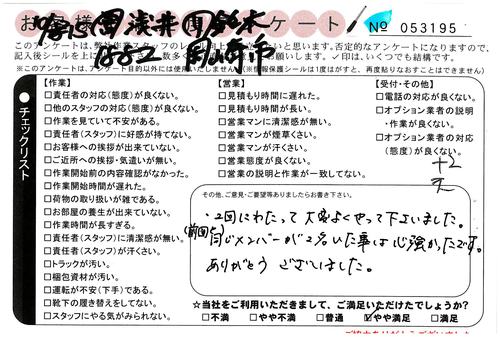 お客様アンケート
浅井 鈴木
№ 053195
記入後シールを上に
お願いします。✓印は、いくつでも結構です。
※このアンケートは、アンケート目的以外には使用いたしません
【作業】
□責任者の対応(態度)が良くない。
□他のスタッフの対応(態度)が良くない。
□作業を見ていて不安がある。
□責任者(スタッフ)に好感が持てない。
□お客様への挨拶が出来ていない。
□ご近所への挨拶・気遣いが無い。
□作業開始前の内容確認がなかった。
□作業開始時間が遅れた。
□荷物の取り扱いが雑である。
□お部屋の養生が出来ていない。
□作業時間が長すぎる。
□責任者(スタッフ)に清潔感が無い。
□責任者(スタッフ)が汗くさい。
□トラックが汚い。
□梱包資材が汚い。
□運転が不安(下手)である。
□靴下の履き替えをしてない。
□スタッフにやる気がみられない。
【営業】
□見積もり時間に遅れた。
□見積もり時間が長い。
□営業マンに清潔感が無い。
□営業マンが煙草くさい。
□営業マンが汗くさい。
□営業態度が良くない。
□営業の説明と作業が一致してない。
【受付・その他】
□電話の対応が良くない。
□オプション業者の説明
・作業が良くない。
□オプション業者の対応
(態度)が良くない。
チェックリスト
その他、ご意見・ご要望等ありましたらお書き下さい。
・2回にわたって大変よくやって下さいました。
(前回と)
同じメンバーが2名いた事は心強かったです。
ありがとうございました。
☆当社をご利用いただきまして、ご満足いただけたでしょうか?
□不満 □やや不満 □普通 ☑やや満足 □満足